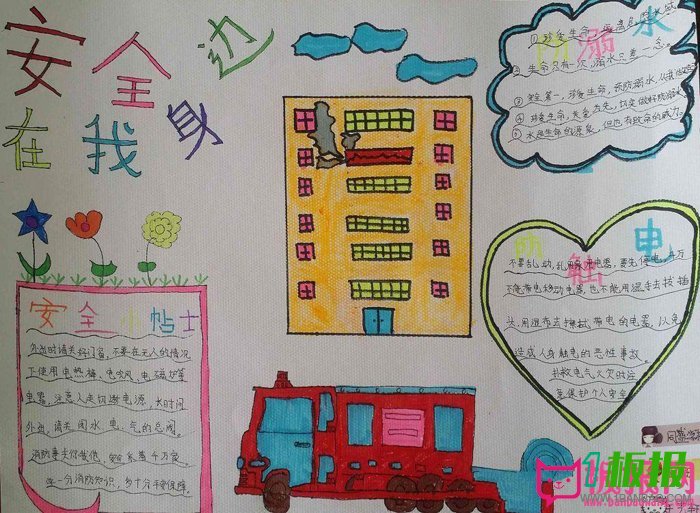 安全在我身边
防溺水
①珍爱生命,远离危险水域
②生命只有一次,溺水只差一念。
③安全第一,珍爱生命,预防溺水,从我做起
④珍爱生命,安全为先,切实做好防溺水
⑤水是生命的源泉,但也有致命的威力。
防触电
不要乱动,乱用家用电器,要先停电,千万
不能带电移动电器,也不能用湿手去拔插
头,用湿布去擦拭带电的电器,以免
造成人身触电的恶性事故。
扑救电气火灾时应
要保护个人安全
安全小帖士
外出时请关好门窗,不要在无人的情况
下使用电热褥、电吹风、电磁炉等
电器,注意人走切断电源,长时间
外出,请关闭水、电、气的总阀。
消防事关你我他,安全系着千万家。
学一分消防知识,多十分平安保障。
板报网
WWW.1BANBAO.COM